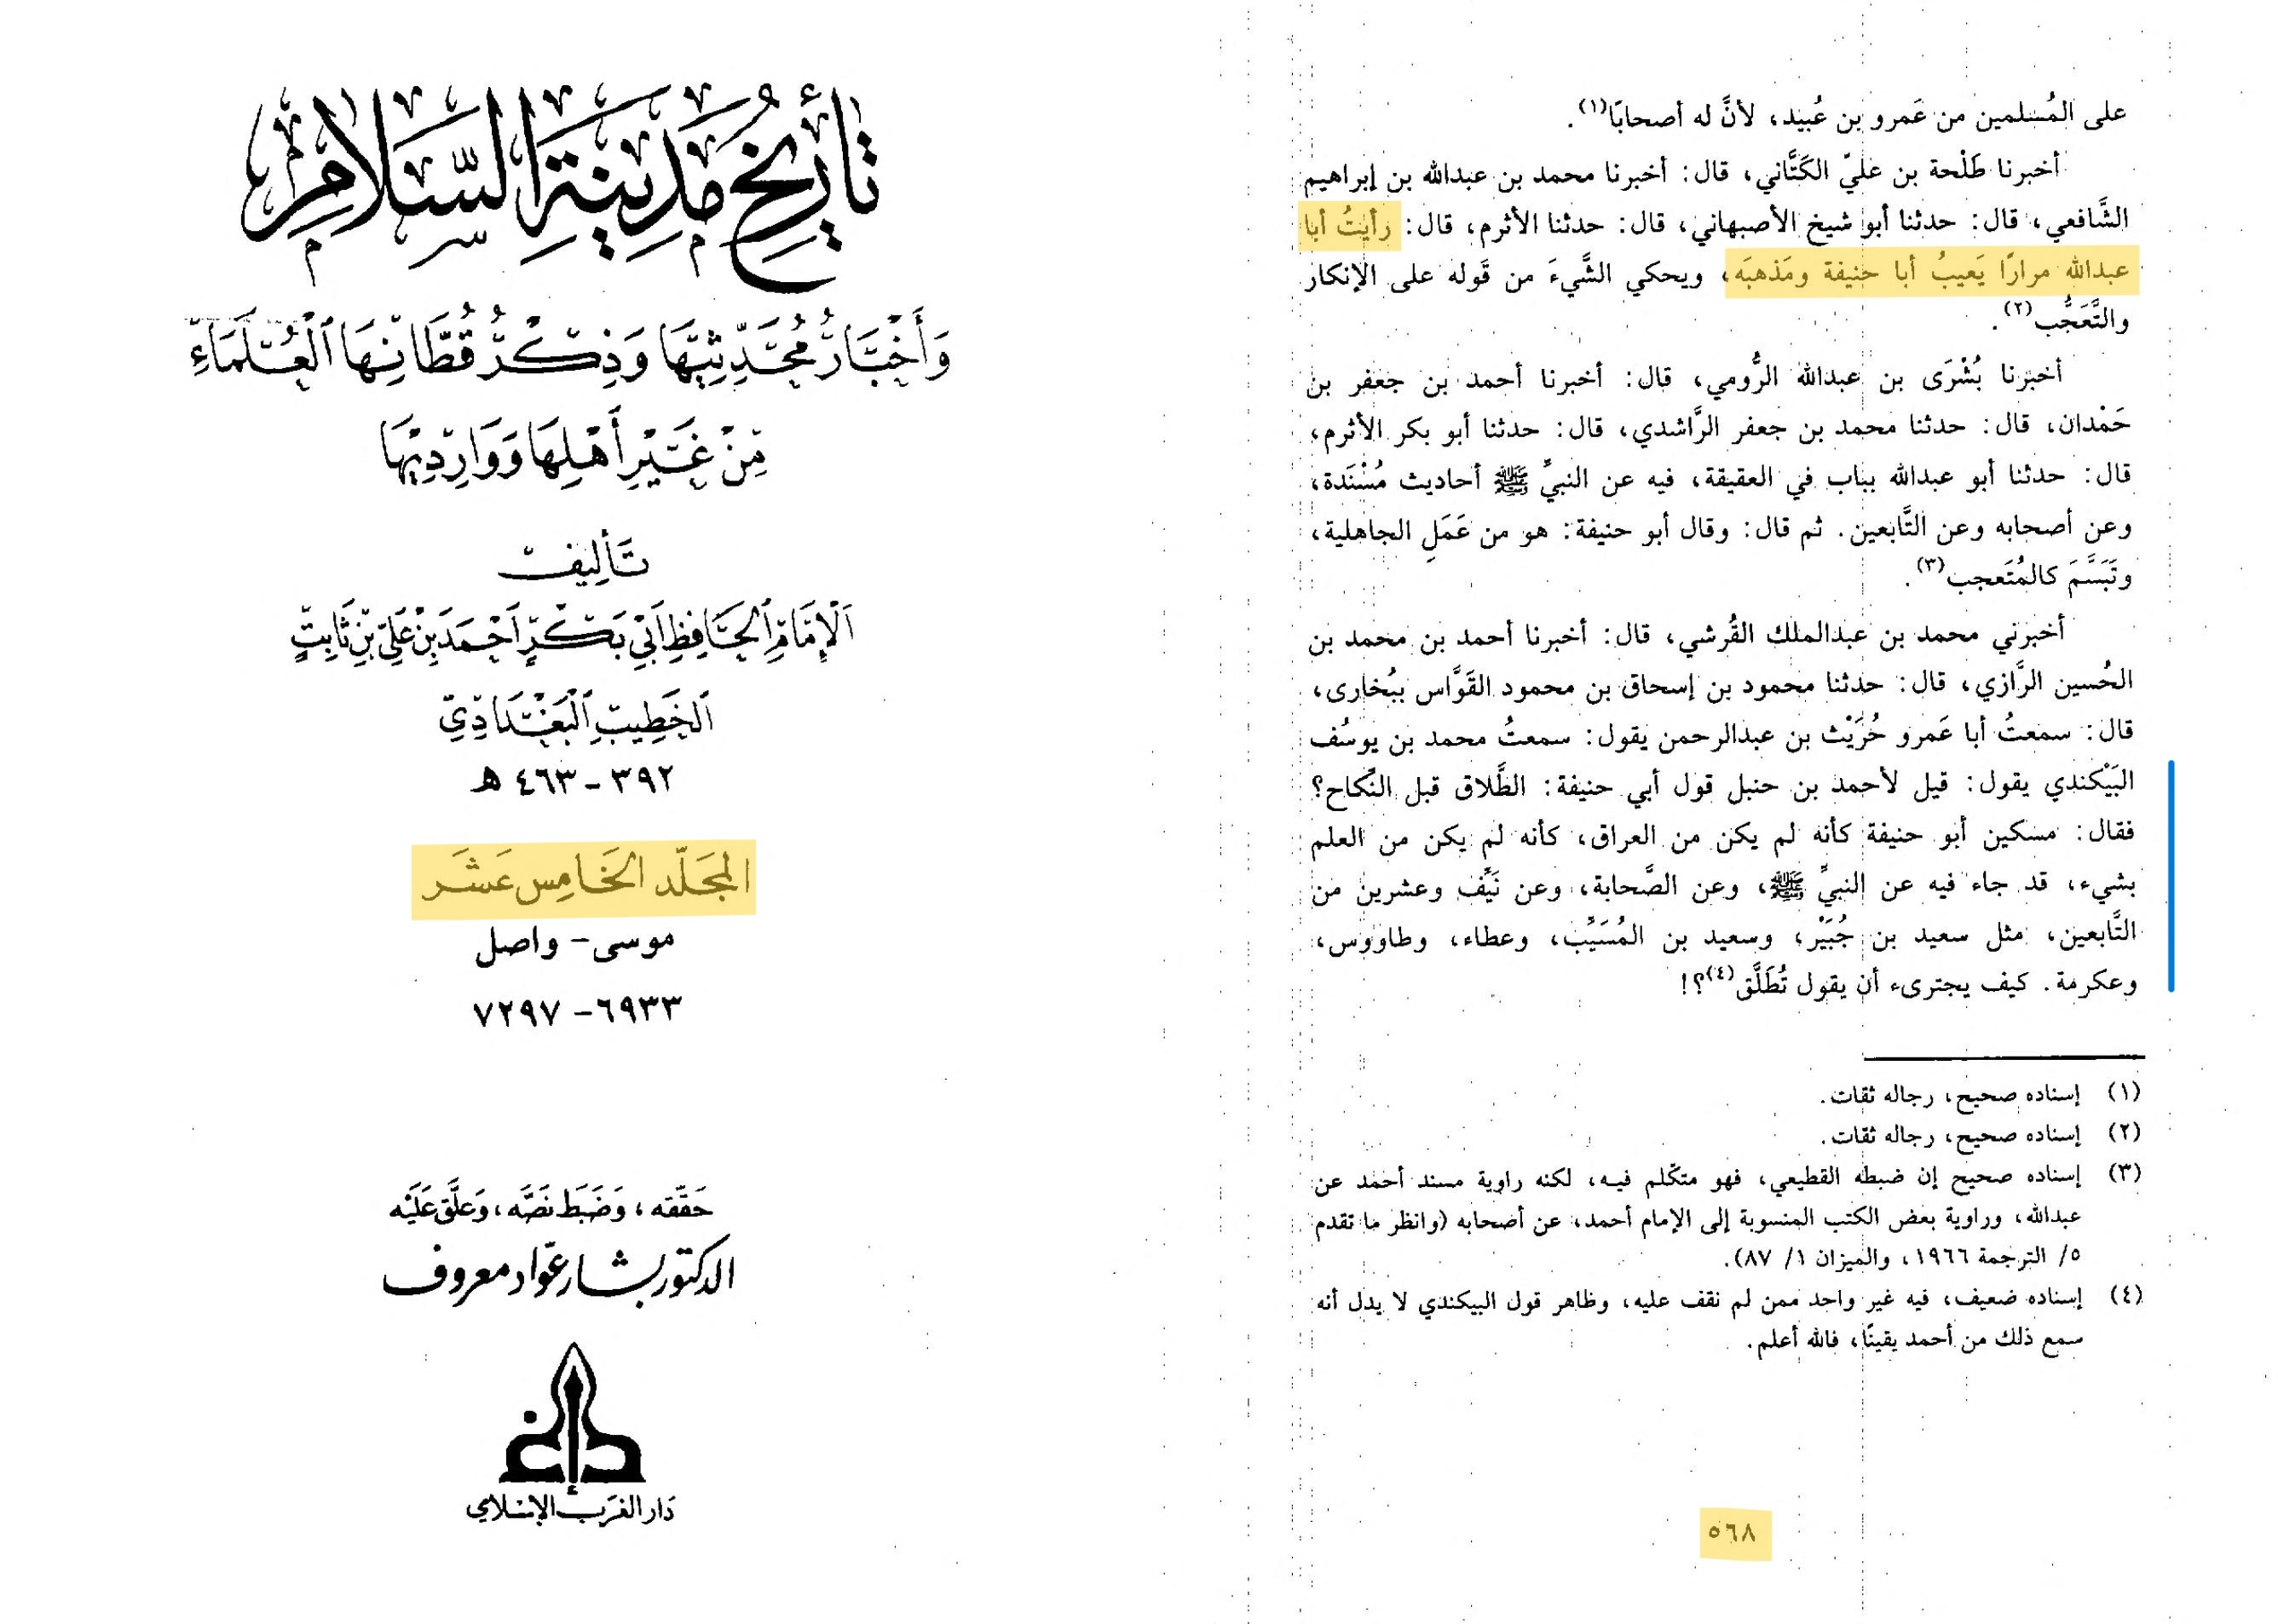 تأريخ مدينة السلام
وَأَخْبَارُ مُحَدِّثِيهَا وَذِكْرُ قُطَّانِهَا الْعُلَمَاءِ
مِنْ غَيْرِ أَهْلِهَا وَوَارِدِيهَا
تأليف
الإِمَامِ الحَافِظِ أَبِي بَكْرٍ أَحْمَدَ بْنِ عَلِيِّ بْنِ ثَابِتٍ
الخَطِيبِ الْبَغْدَادِيِّ
٣٩٢ - ٤٦٣ هـ
المجَلّد الخَامِس عَشَر
موسى - واصل
٦٩٣٣ - ٧٢٩٧
حَقّقه، وَضَبَط نَصّه، وَعَلَّق عَلَيْه
الدكتور بشار عوّاد معروف
دَار الغَرب الإسلامي
على المُسلمين من عَمرو بن عُبيد، لأنَّ له أصحابًا(١).
أخبرنا طَلْحة بن عليّ الكَتَّاني، قال: أخبرنا محمد بن عبدالله بن إبراهيم
الشَّافعي، قال: حدثنا أبو شيخ الأصبهاني، قال: حدثنا الأثرم، قال: رأيتُ أبا
عبدالله مرارًا يَعيبُ أبا حنيفة ومَذهبَه، ويحكي الشَّيءَ من قَوله على الإنكار
والتَّعَجُّب(٢).
أخبرنا بُشْرَى بن عبدالله الرُّومي، قال: أخبرنا أحمد بن جعفر بن
حَمْدان، قال: حدثنا محمد بن جعفر الرَّاشدي، قال: حدثنا أبو بكر الأثرم،
قال: حدثنا أبو عبدالله بباب في العقيقة، فيه عن النبيِّ ﷺ أحاديث مُسْنَدة،
وعن أصحابه وعن التَّابعين. ثم قال: وقال أبو حنيفة: هو من عَمَلِ الجاهلية،
وتَبَسَّمَ كالمُتَعجب(٣).
أخبرني محمد بن عبدالملك القُرشي، قال: أخبرنا أحمد بن محمد بن
الحُسين الرَّازي، قال: حدثنا محمود بن إسحاق بن محمود القَوَّاس ببُخارى،
قال: سمعتُ أبا عَمرو حُرَيْث بن عبدالرحمن يقول: سمعتُ محمد بن يوسُف
البَيْكندي يقول: قيل لأحمد بن حنبل قول أبي حنيفة: الطَّلاق قبل النِّكاح؟
فقال: مسكين أبو حنيفة كأنه لم يكن من العراق، كأنه لم يكن من العلم
بشيء، قد جاء فيه عن النبيِّ ﷺ، وعن الصَّحابة، وعن نَيِّف وعشرين من
التَّابعين، مثل سعيد بن جُبَيْر، وسعيد بن المُسَيِّب، وعطاء، وطاووس،
وعكرمة. كيف يجترىء أن يقول تُطَلَّق(٤)؟!
(١) إسناده صحيح، رجاله ثقات.
(٢) إسناده صحيح، رجاله ثقات.
(٣) إسناده صحيح إن ضبطه القطيعي، فهو متكلم فيه، لكنه راوية مسند أحمد عن
عبدالله، وراوية بعض الكتب المنسوبة إلى الإمام أحمد، عن أصحابه (وانظر ما تقدم
٥/ الترجمة ١٩٦٦، والميزان ١/ ٨٧).
(٤) إسناده ضعيف، فيه غير واحد ممن لم نقف عليه، وظاهر قول البيكندي لا يدل أنه
سمع ذلك من أحمد يقينًا، فالله أعلم.
٥٦٨